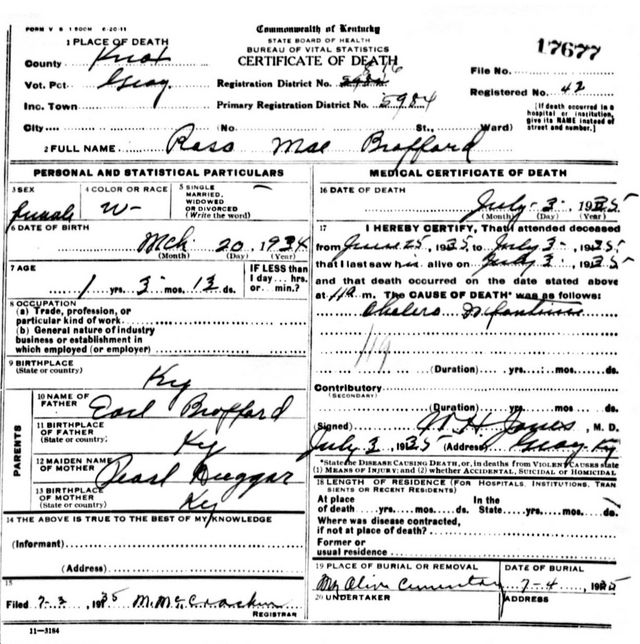 FORM V S 1 500M 6-20-11
Commonwealth of Kentucky
STATE BOARD OF HEALTH
BUREAU OF VITAL STATISTICS
CERTIFICATE OF DEATH
17677
1 PLACE OF DEATH
County Knox
Vot. Pct. Gray
Inc. Town
City No St., Ward)
Registration District No.
Primary Registration District No. 5984
File No.
Registered No. 42
[If death occurred in a
hospital or institution,
give its NAME instead of
street and number.]
2 FULL NAME Ross Mae Brofford
PERSONAL AND STATISTICAL PARTICULARS
3 SEX
female
4 COLOR OR RACE
W
5 SINGLE
MARRIED,
WIDOWED
OR DIVORCED
(Write the word)
6 DATE OF BIRTH
Mch 20, 1934
(Month) (Day) (Year)
7 AGE
1 yrs. 3 mos. 13 ds.
IF LESS than
1 day ... hrs.
or min.?
8 OCCUPATION
(a) Trade, profession, or
particular kind of work
(b) General nature of industry
business or establishment in
which employed (or employer)
9 BIRTHPLACE
(State or country)
Ky
PARENTS
10 NAME OF
FATHER
Earl Brofford
11 BIRTHPLACE
OF FATHER
(State or country)
Ky
12 MAIDEN NAME
OF MOTHER
Pearl Duggar
13 BIRTHPLACE
OF MOTHER
(State or country)
Ky
14 THE ABOVE IS TRUE TO THE BEST OF MY KNOWLEDGE
(Informant)
(Address)
15
Filed 7-3, 1935 M. McCracken
REGISTRAR
11-3184
MEDICAL CERTIFICATE OF DEATH
16 DATE OF DEATH
July 3, 1935
(Month) (Day) (Year)
17 I HEREBY CERTIFY, That I attended deceased
from June 25, 1935, to July 3, 1935
that I last saw him alive on July 3, 1935
and that death occurred on the date stated above
at m. The CAUSE OF DEATH* was as follows:
Cholera Infantum
119
(Duration) yrs. mos. ds.
Contributory
(SECONDARY)
(Duration) yrs. mos. ds.
(Signed) Jones, M. D.
July 3 1935 (Address) Gray Ky
*State the DISEASE CAUSING DEATH, or, in deaths from VIOLENT CAUSES state
(1) MEANS OF INJURY; and (2) whether ACCIDENTAL, SUICIDAL or HOMICIDAL
18 LENGTH OF RESIDENCE (FOR HOSPITALS, INSTITUTIONS, TRAN
SIENTS OR RECENT RESIDENTS)
At place In the
of death yrs. mos. ds. State yrs. mos. ds.
Where was disease contracted,
if not at place of death?
Former or
usual residence
19 PLACE OF BURIAL OR REMOVAL DATE OF BURIAL
Mt Olive Cemetery 7-4, 1935
20 UNDERTAKER ADDRESS